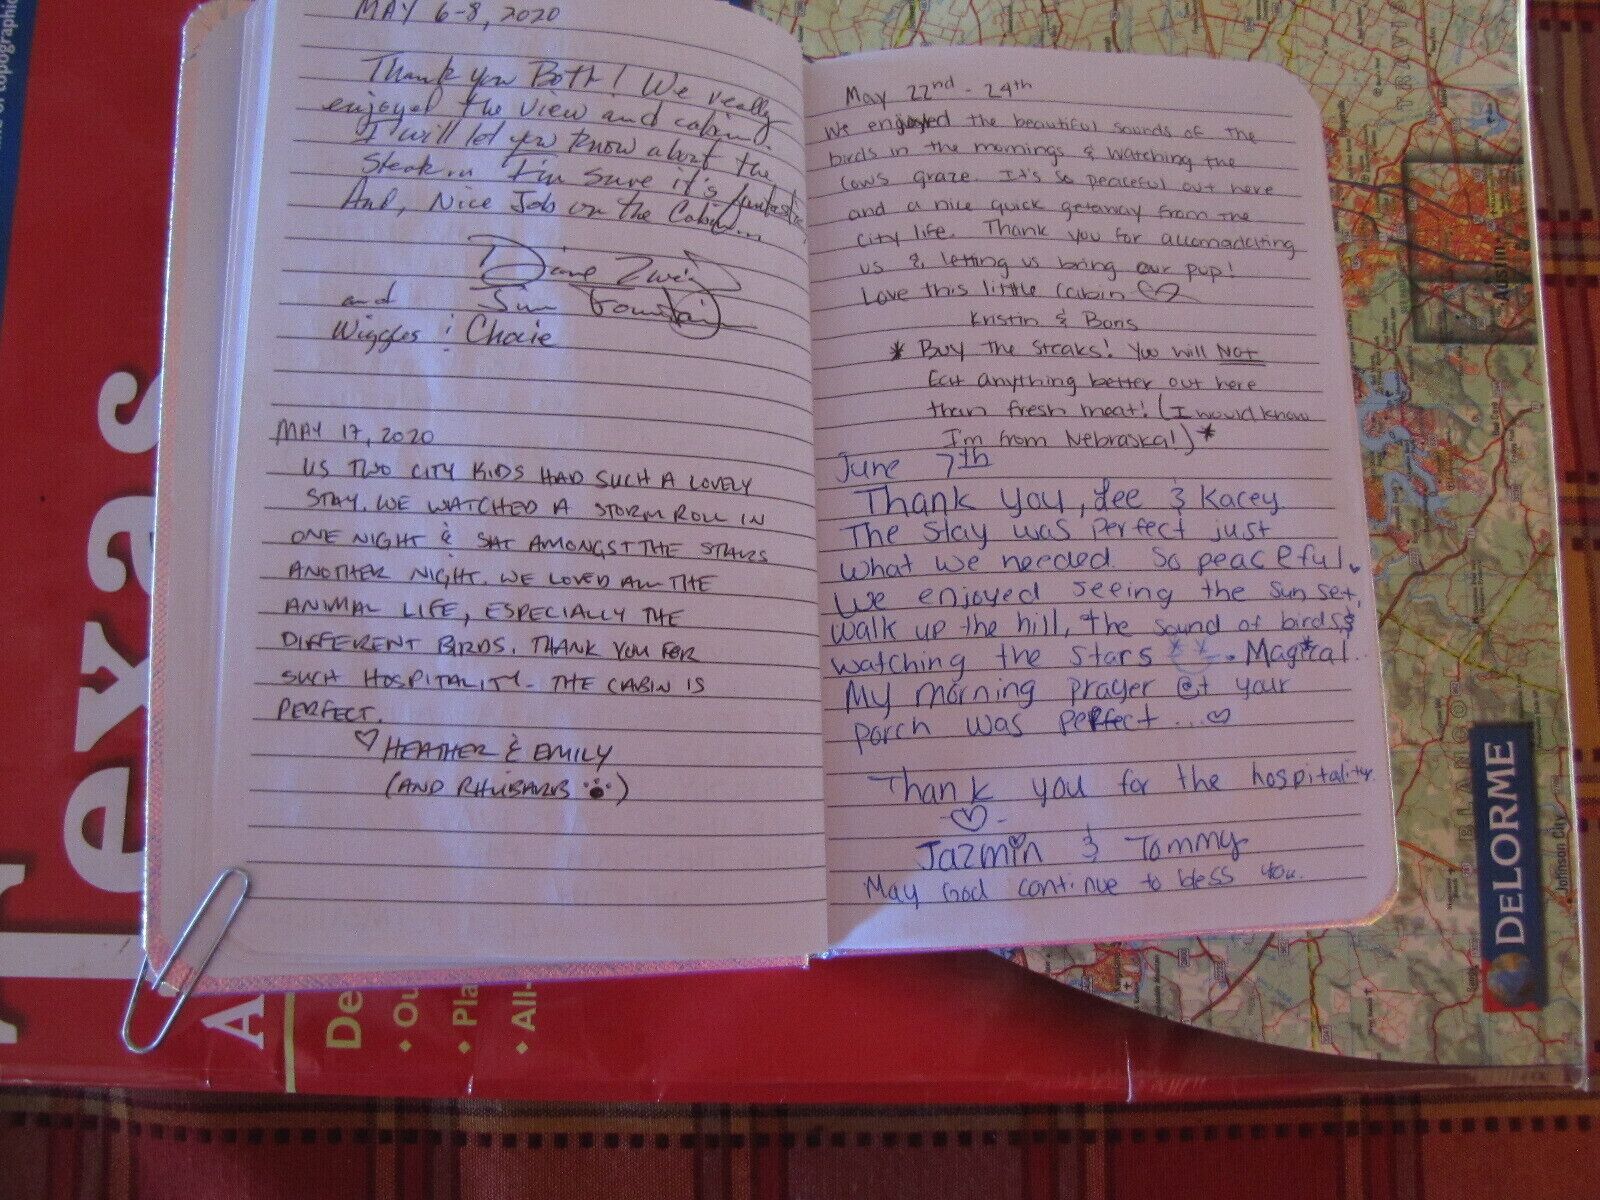 MAY 6-8, 2020
Thank you Both! We really
enjoyed the view and cabin.
I will let you know about the
steak... I'm sure it's fantastic,
And, Nice Job on the Cabin...
Diane
and Jim
Wiggles & Choxie
MAY 17, 2020
US TWO CITY KIDS HAD SUCH A LOVELY
STAY. WE WATCHED A STORM ROLL IN
ONE NIGHT & SAT AMONGST THE STARS
ANOTHER NIGHT. WE LOVED ALL THE
ANIMAL LIFE, ESPECIALLY THE
DIFFERENT BIRDS. THANK YOU FOR
SUCH HOSPITALITY - THE CABIN IS
PERFECT.
♡ HEATHER & EMILY
(AND RHUBARB)
May 22nd - 24th
We enjoyed the beautiful sounds of the
birds in the mornings & watching the
cows graze. It's so peaceful out here
and a nice quick getaway from the
city life. Thank you for accomadating
us & letting us bring our pup!
Love this little cabin ♡
Kristin & Boris
* Buy the steaks! You will Not
Eat anything better out here
than fresh meat! (I would know
I'm from Nebraska!) *
June 7th
Thank you, Lee & Kacey
The stay was perfect just
what we needed. So peaceful.
We enjoyed seeing the sun set,
walk up the hill, the sound of birds &
watching the stars. Magical.
My morning prayer @t your
porch was perfect...♡
Thank you for the hospitality.
♡-
Jazmin & Tommy
May God continue to bless you.
exas
DELORME
AUSTIN
TRAVIS
BLANCO
Johnson City
A
De
• Ou
• Pla
• All-
topographic